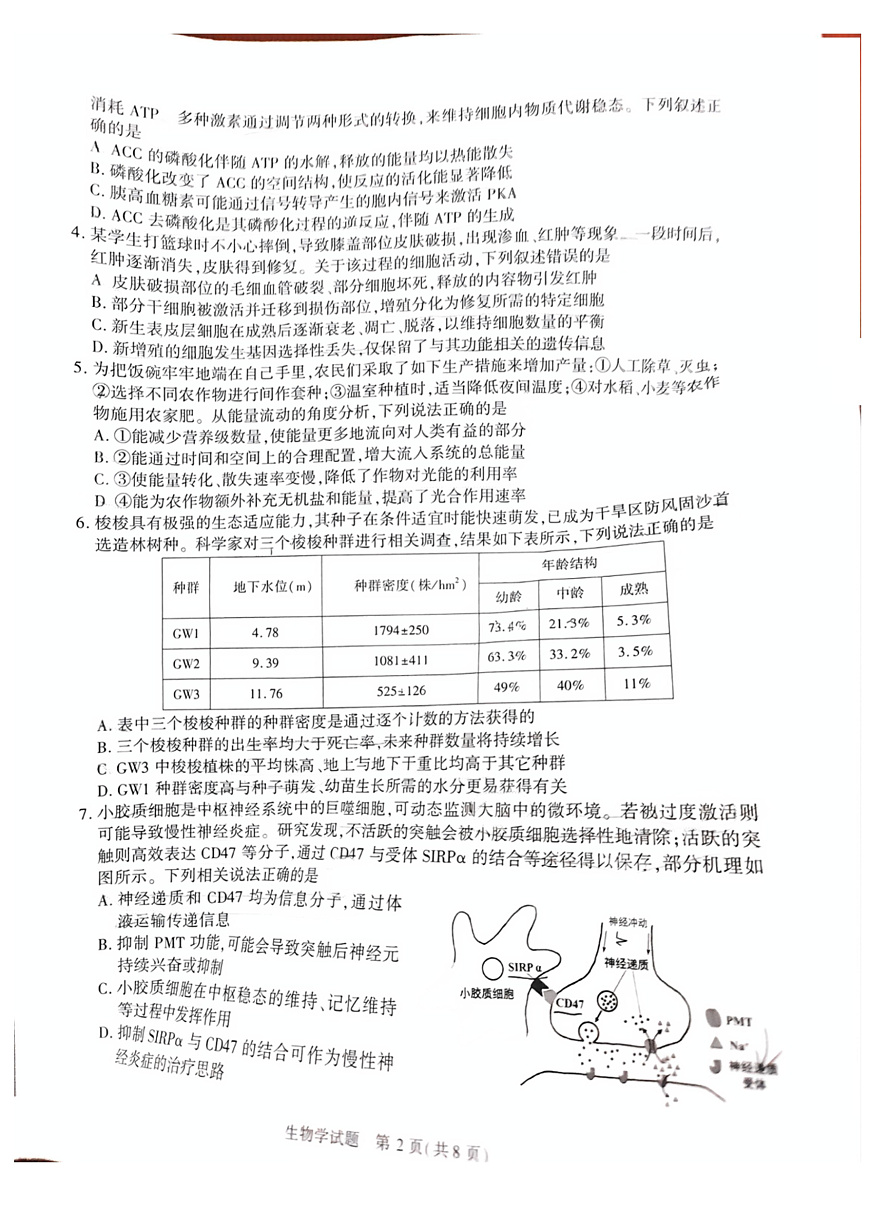 消耗 ATP 多种激素通过调节两种形式的转换,来维持细胞内物质代谢稳态。下列叙述正
确的是
A ACC 的磷酸化伴随 ATP 的水解,释放的能量均以热能散失
B. 磷酸化改变了 ACC 的空间结构,使反应的活化能显著降低
C. 胰高血糖素可能通过信号转导产生的胞内信号来激活 PKA
D. ACC 去磷酸化是其磷酸化过程的逆反应,伴随 ATP 的生成
4. 某学生打篮球时不小心摔倒,导致膝盖部位皮肤破损,出现渗血、红肿等现象 一段时间后,
红肿逐渐消失,皮肤得到修复。关于该过程的细胞活动,下列叙述错误的是
A 皮肤破损部位的毛细血管破裂、部分细胞坏死,释放的内容物引发红肿
B. 部分干细胞被激活并迁移到损伤部位,增殖分化为修复所需的特定细胞
C. 新生表皮层细胞在成熟后逐渐衰老、凋亡、脱落,以维持细胞数量的平衡
D. 新增殖的细胞发生基因选择性丢失,仅保留了与其功能相关的遗传信息
5. 为把饭碗牢牢地端在自己手里,农民们采取了如下生产措施来增加产量:①人工除草、灭虫;
②选择不同农作物进行间作套种;③温室种植时,适当降低夜间温度;④对水稻、小麦等农作
物施用农家肥。从能量流动的角度分析,下列说法正确的是
A. ①能减少营养级数量,使能量更多地流向对人类有益的部分
B. ②能通过时间和空间上的合理配置,增大流入系统的总能量
C. ③使能量转化、散失速率变慢,降低了作物对光能的利用率
D ④能为农作物额外补充无机盐和能量,提高了光合作用速率
6. 梭梭具有极强的生态适应能力,其种子在条件适宜时能快速萌发,已成为干旱区防风固沙首
选造林树种。科学家对三个梭梭种群进行相关调查,结果如下表所示,下列说法正确的是
种群 地下水位(m) 种群密度(株/hm²) 年龄结构
幼龄 中龄 成熟
GW1 4.78 1794±250 73.4% 21.3% 5.3%
GW2 9.39 1081±411 63.3% 33.2% 3.5%
GW3 11.76 525±126 49% 40% 11%
A. 表中三个梭梭种群的种群密度是通过逐个计数的方法获得的
B. 三个梭梭种群的出生率均大于死亡率,未来种群数量将持续增长
C GW3 中梭梭植株的平均株高、地上与地下干重比均高于其它种群
D. GW1 种群密度高与种子萌发、幼苗生长所需的水分更易获得有关
7. 小胶质细胞是中枢神经系统中的巨噬细胞,可动态监测大脑中的微环境。若被过度激活则
可能导致慢性神经炎症。研究发现,不活跃的突触会被小胶质细胞选择性地清除;活跃的突
触则高效表达 CD47 等分子,通过 CD47 与受体 SIRPα 的结合等途径得以保存,部分机理如
图所示。下列相关说法正确的是
A. 神经递质和 CD47 均为信息分子,通过体
液运输传递信息
B. 抑制 PMT 功能,可能会导致突触后神经元
持续兴奋或抑制
C. 小胶质细胞在中枢稳态的维持、记忆维持
等过程中发挥作用
D. 抑制 SIRPα 与 CD47 的结合可作为慢性神
经炎症的治疗思路
神经冲动
神经递质
SIRPα
小胶质细胞
CD47
PMT
Na⁺
神经递质
受体
生物学试题 第 2 页(共 8 页)